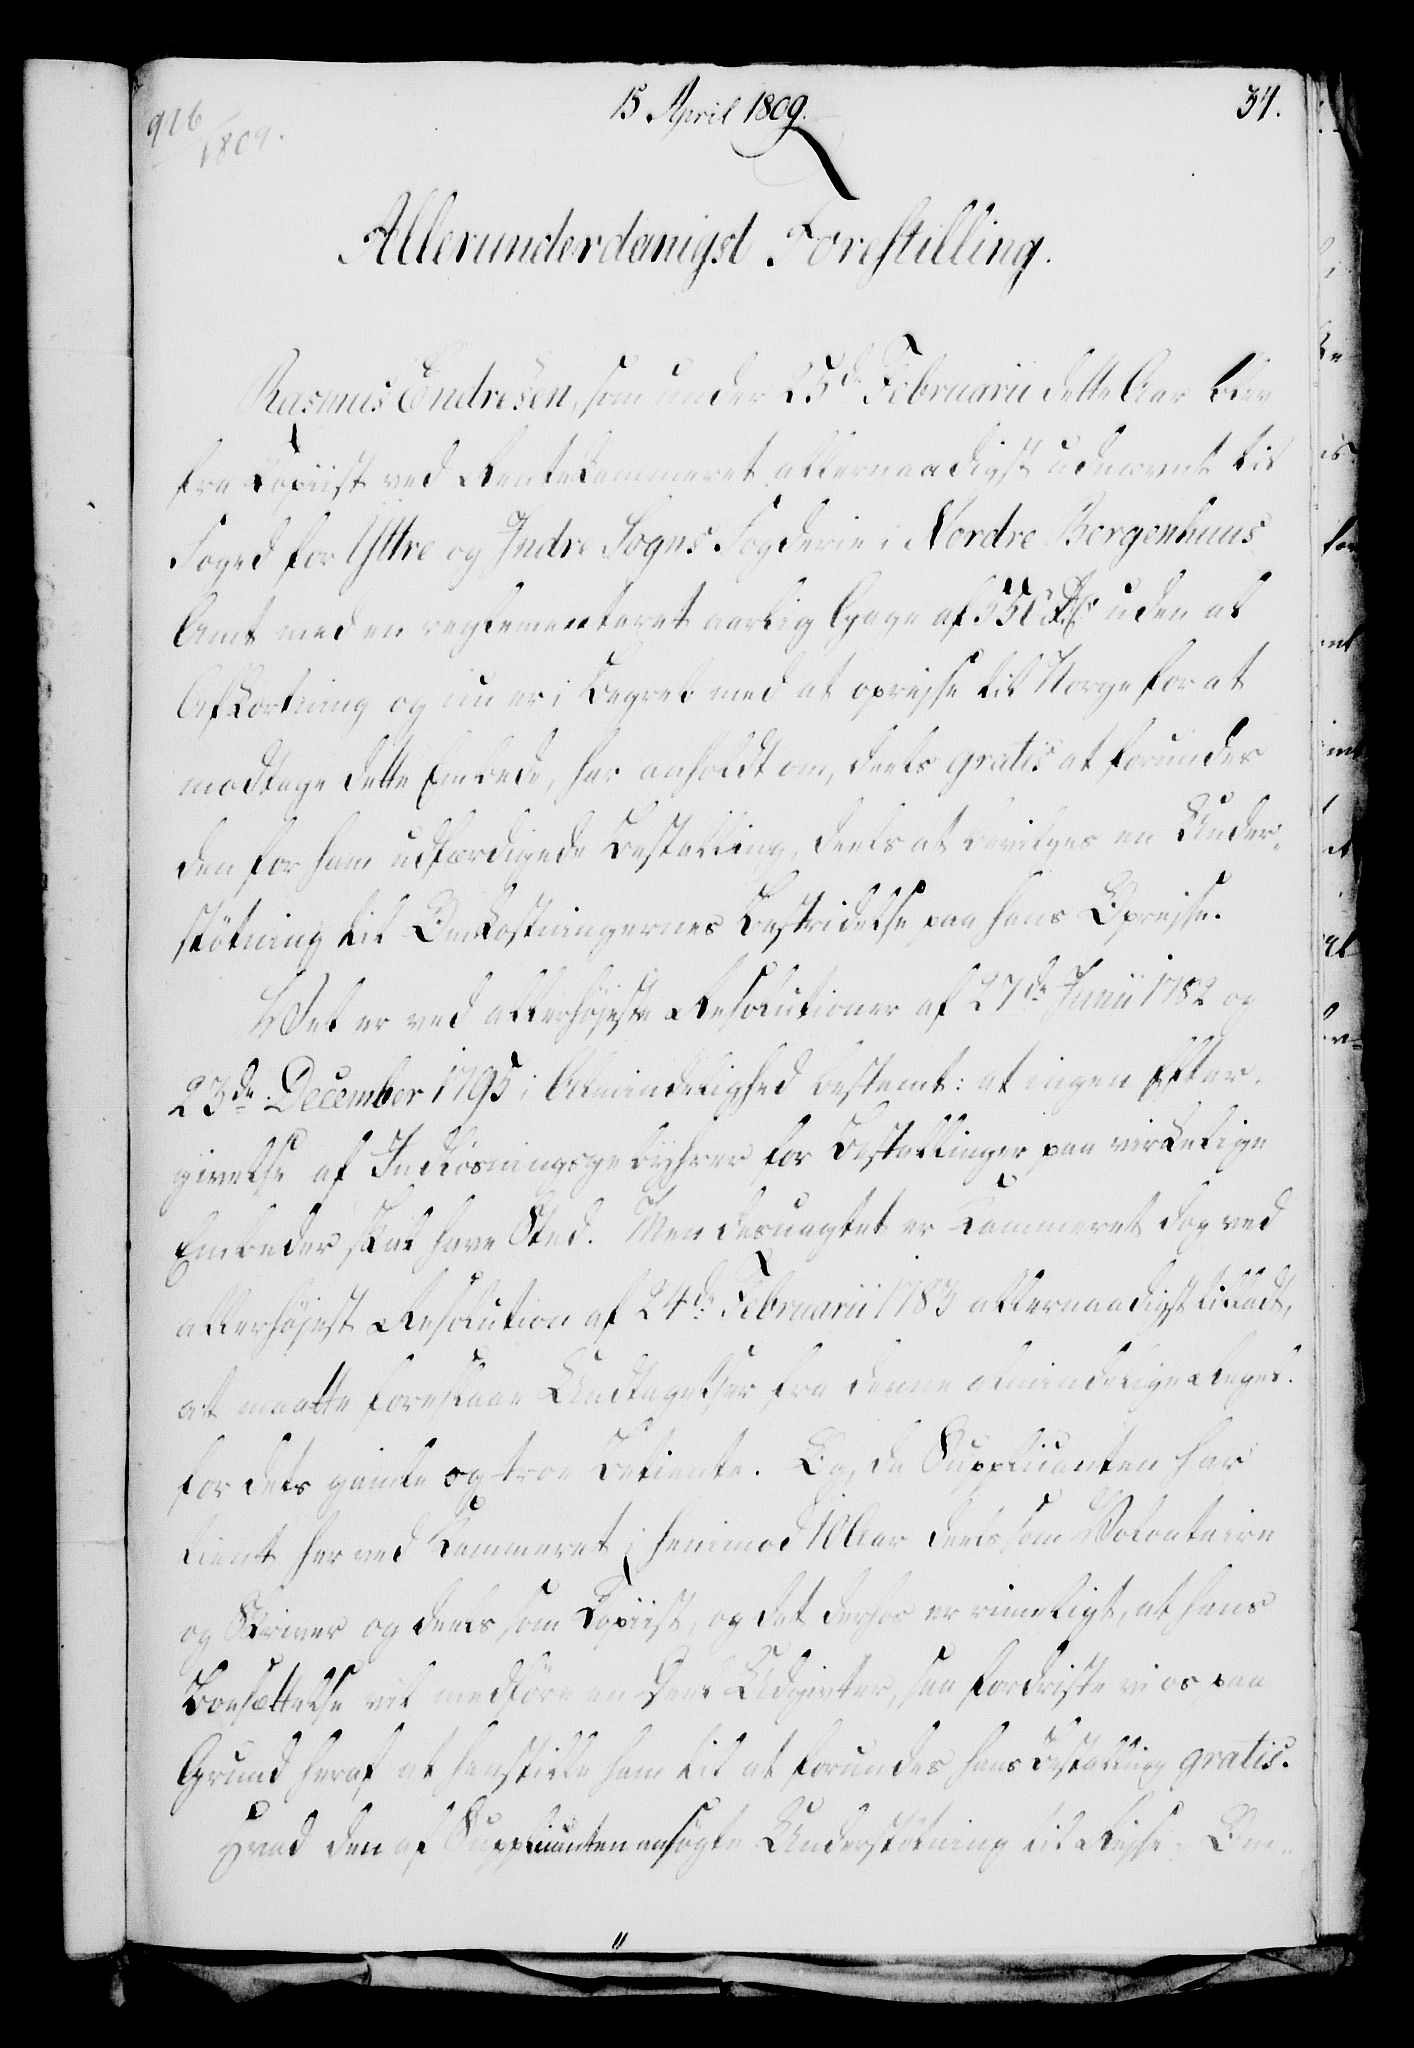 916
1809.
15 April 1809.
34.
Allerunderdanigst Forestilling.
Rasmus Endresen, som under 25de Februarii dette Aar blev
fra Copiist ved Rentekammeret allernaadigst udnævnt til
Foged for Yttre og Indre Sogns Fogderie i Nordre Bergenhuus
Amt med en reglementeret aarlig Gage af 550 Rd uden al
Afkortning og nu er i Begreb med at oprejse til Norge for at
modtage dette Embede, har anholdt om, deels gratis at forundes
den for ham udfærdigede Bestalling, deels at bevilges en Under-
støtning til Omkostningernes Bestridelse paa hans Oprejse.
Vel er ved allerhøjeste Resolutioner af 27de Junii 1782 og
23de December 1795 i Almindelighed bestemt: at ingen Efter-
givelse af Indløsningsgebyhrer for Bestallinger paa virkelige
Embeder skal have Sted. Men desuagtet er Kammeret dog ved
allerhøjest Resolution af 24de Februarii 1783 allernaadigst tilladt,
at maatte foreslaae Undtagelser fra denne almindelige Regel
for dets gamle og troe Betiente. Og, da Supplicanten har
tient her ved Kammeret i henimod 10 Aar deels som Volontaire
og Skriver og deels som Copiist, og det derhos er rimeligt, at hans
Boesættelse vil medføre en Deel Udgivter saa fordriste vi os paa
Grund heraf at henstille ham til at forundes hans Bestalling gratis.
Hvad den af Supplicanten ansøgte Understøtning til Rejse-Om-